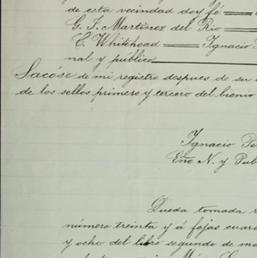 de esta vecindad doy fé
G. F. Martínez del Río
E. Whitehead Ignacio
nal y público
Sacóse de mi registro despues de su
de los sellos primero y tercero del bienio
Ignacio Pe
Eño N. y Pub
Queda tomada r
número treinta y á fojas cuare
y ocho del libro segundo de m